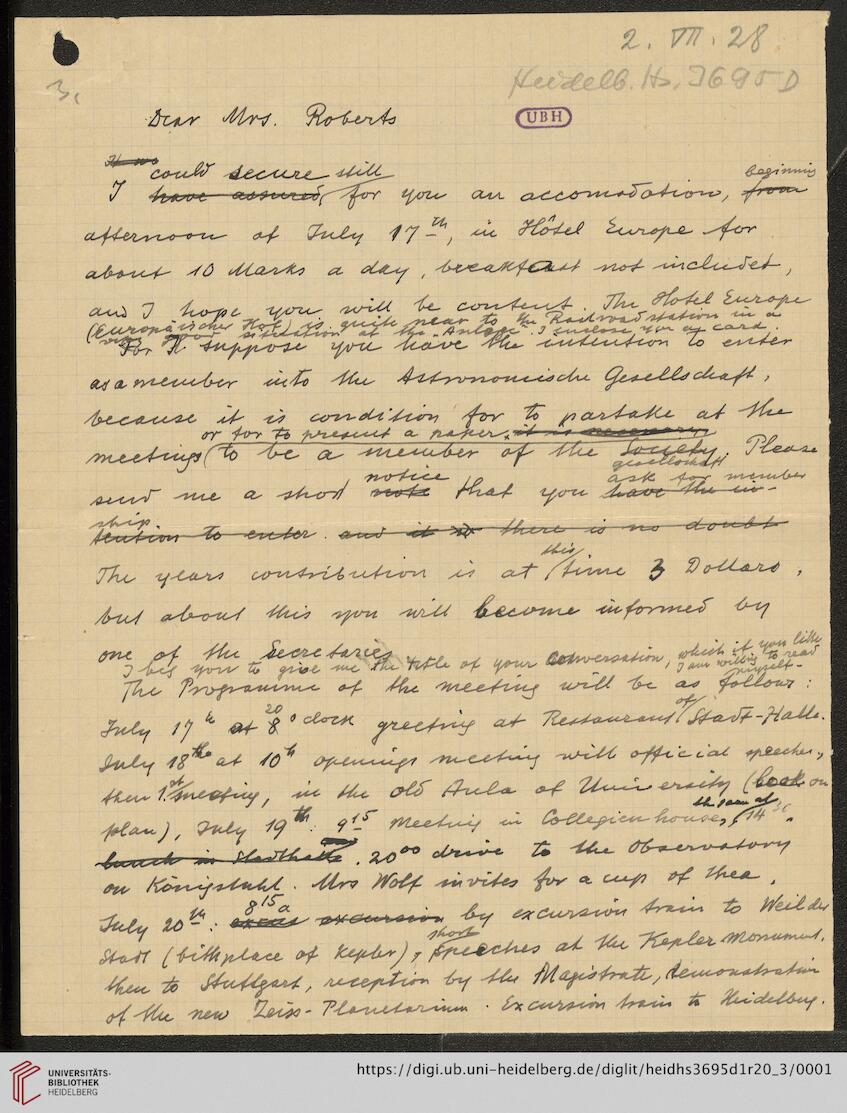 2. VII. 28
Heidelb. Hs. 3695 D
3,
UBH
Dear Mrs. Roberts
could secure still beginning
I have assured, for you an accomodation, from
afternoon of July 17th, in Hôtel Europe for
about 10 Marks a day, breakfast not includet,
and I hope you will be content. The Hotel Europe
(Europäischer Hof) is quite near to the Railroad station in a
very good situation at the "Anlage". I enclose you a card.
For I suppose you have the intention to enter
as a member into the Astronomische Gesellschaft,
because it is condition for to partake at the
or for to present a paper. it is necessary
meetings (to be a member of the Society. Please
gesellschaft
notice ask for member
send me a short note that you have the in-
ship
tention to enter. and it is there is no doubt
this
The years contribution is at time 3 Dollars,
but about this you will become informed by
one of the Secretaries
I beg you to give me the title of your conversation, which if you like
I am willing to read
myself-
The Programme of the meeting will be as follows:
20 of
July 17th at 8 o'clock greeting at Restaurant Stadt-Halle.
July 18th at 10h openings meeting with official speeches,
then 1.st meeting, in the old Aula of University (look on
the same at
plan), July 19th: 9 15 Meeting in Collegien house, 14 30.
lunch in Stadthalle. 20 00 drive to the Observatory
on Königstuhl. Mrs Wolf invites for a cup of thea,
8 15 a
July 20th: excus excursion by excursion train to Weil der
short
Stadt (bithplace of Kepler), Speeches at the Kepler Monument,
then to Stuttgart, reception by the Magistrate, demonstration
of the new Zeiss-Planetarium. Excursion train to Heidelberg.
UNIVERSITÄTS-
BIBLIOTHEK
HEIDELBERG
https://digi.ub.uni-heidelberg.de/diglit/heidhs3695d1r20_3/0001